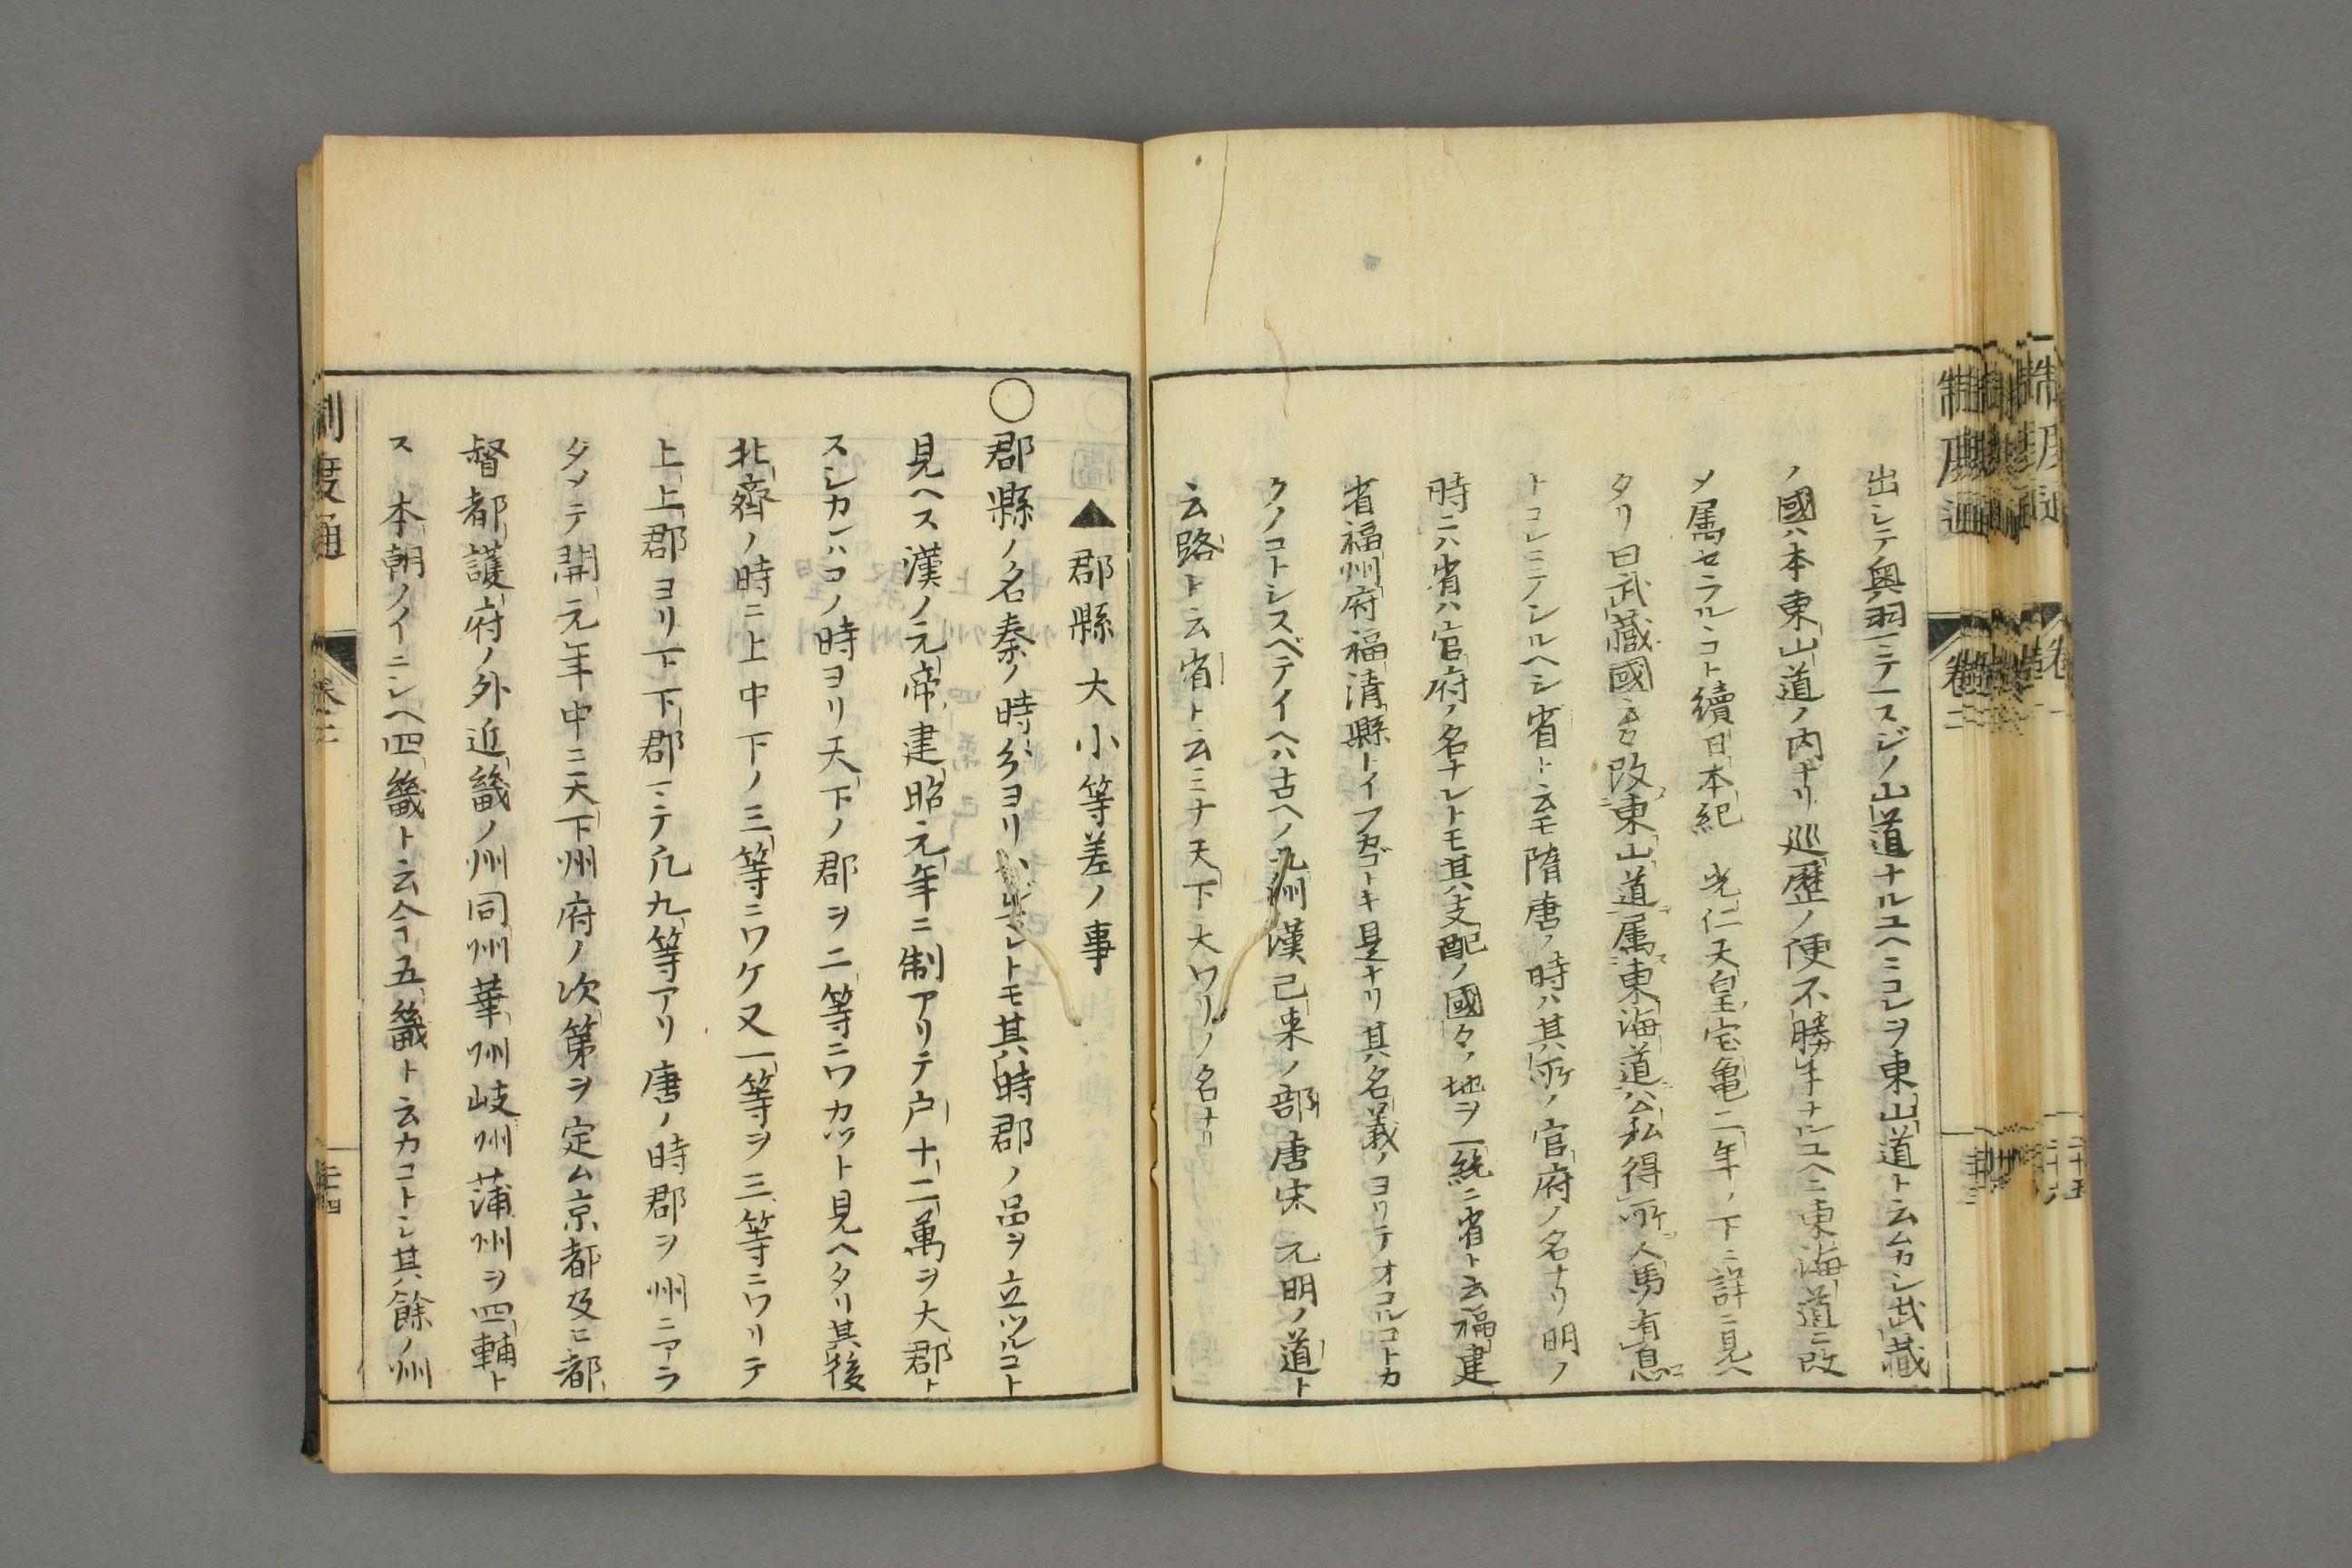 出シテ奥羽ニテ一スジノ山道ナルユヘニコレヲ東山道ト云ムカシ武藏
ノ國ハ本東山道ノ内ナリ巡歷ノ便不勝手ナルユヘニ東海道ニ改
メ属セラルヽコト續日本紀 光仁天皇宝亀二年ノ下ニ詳ニ見ヘ
タリ曰武藏國云云改東山道属東海道公私得所人馬有息
トコレニテシルヘシ省ト云モ隋唐ノ時ハ其所ノ官府ノ名ナリ明ノ
時ニハ省ハ官府ノ名ナレトモ其支配ノ國々ノ地ヲ一統ニ省ト云福建
省福州府福清縣トイフガゴトキ是ナリ其名義ノヨリテオコルコトカ
クノコトシスベテイヘハ古ヘノ九州漢已来ノ部唐宋元明ノ道ト
云路ト云省ト云ミナ天下大ワリノ名ナリ
▲郡縣大小等差ノ事
○郡縣ノ名秦ノ時分ヨリハジマレトモ其時郡ノ品ヲ立ツルコト
見ヘス漢ノ元帝建昭元年ニ制アリテ户十二萬ヲ大郡ト
スシカレハコノ時ヨリ天下ノ郡ヲ二等ニワカツト見ヘタリ其後
北齊ノ時ニ上中下ノ三等ニワケ又一等ヲ三等ニワリテ
上上郡ヨリ下下郡マテ凡九等アリ唐ノ時郡ヲ州ニアラ
タメテ開元年中ニ天下州府ノ次第ヲ定ム京都及ヒ都
督都護府ノ外近畿ノ州同州華州岐州蒲州ヲ四輔ト
ス 本朝ノイニシヘ四畿ト云今五畿ト云カコトシ其餘ノ州
制度通 卷二 二十四